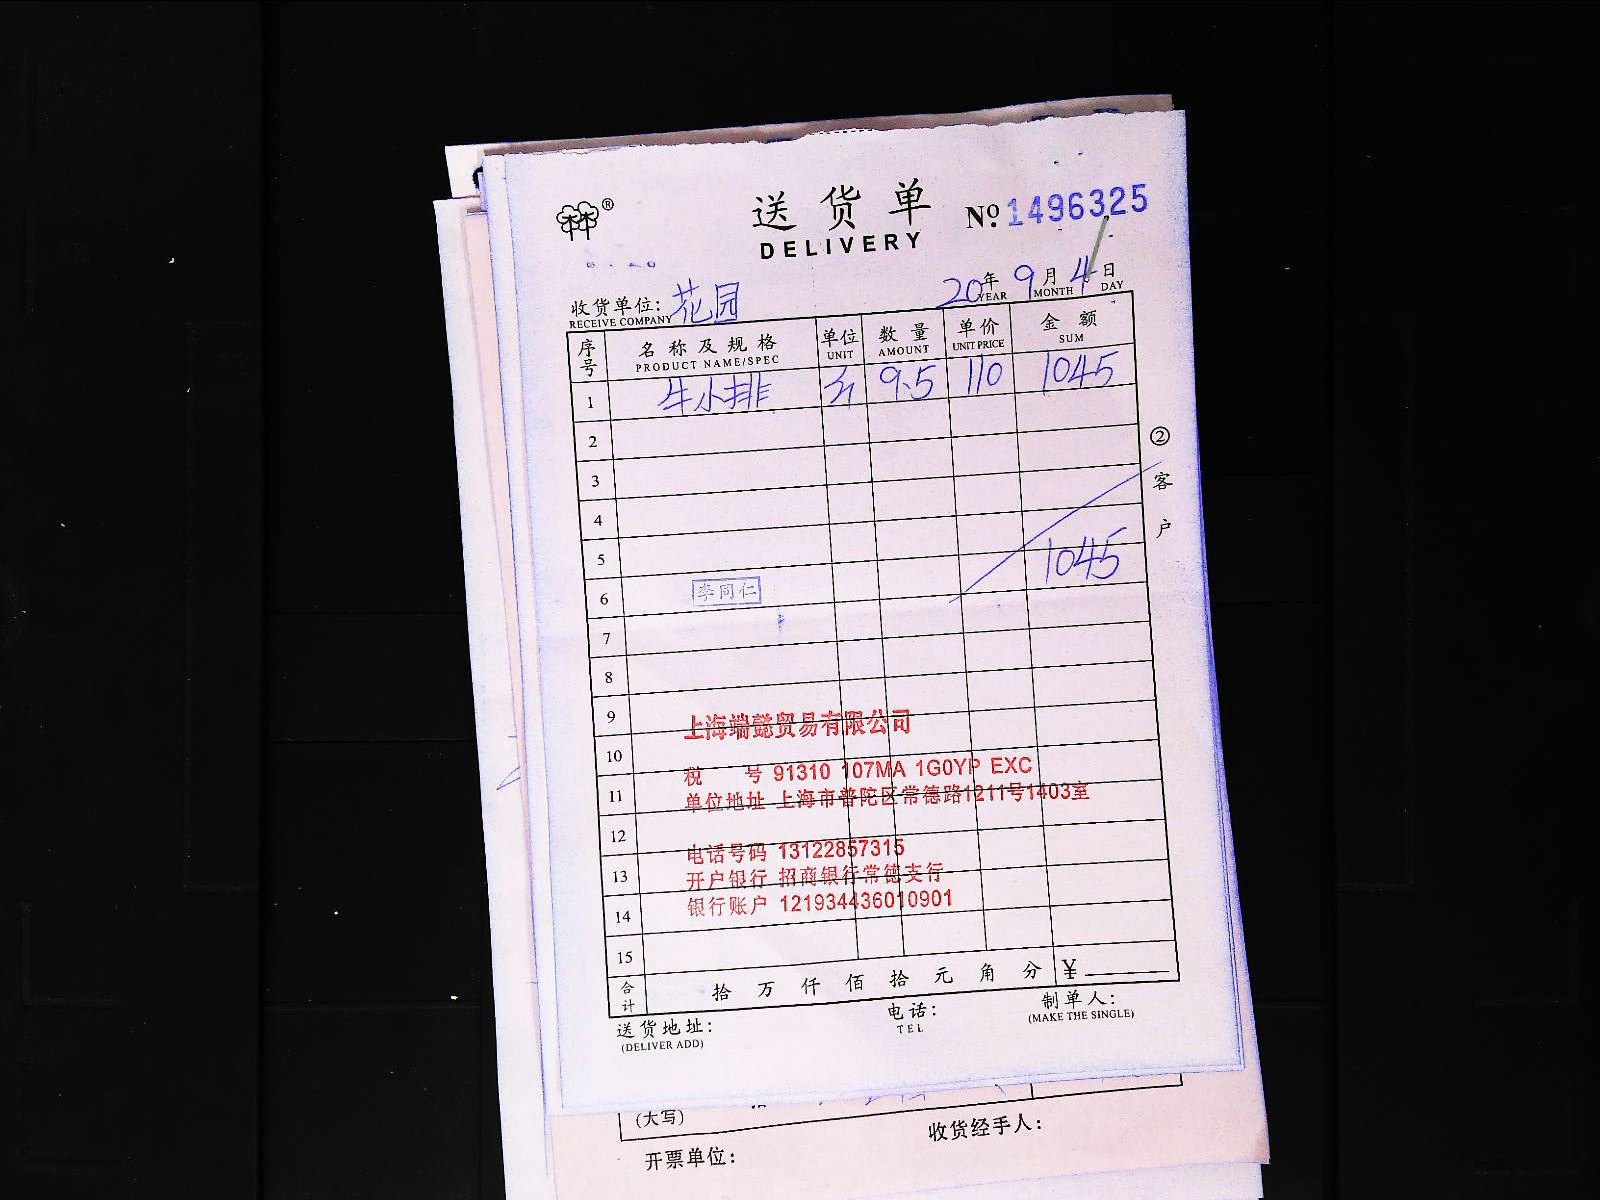 ®
送货单
DELIVERY
№ 1496325
收货单位: 花园
RECEIVE COMPANY
20年 9月 4日
YEAR MONTH DAY
序号 名称及规格 单位 数量 单价 金额
PRODUCT NAME/SPEC UNIT AMOUNT UNIT PRICE SUM
1 牛小排 9.5 110 1045
2
3
4
5
1045
6 李同仁
7
8
9
上海端懿贸易有限公司
10
税 号 91310 107MA 1G0YP EXC
11
单位地址 上海市普陀区常德路1211号1403室
12
电话号码 13122857315
13 开户银行 招商银行常德支行
14 银行账户 121934436010901
15
合计 拾 万 仟 佰 拾 元 角 分 ¥
②客户
送货地址: 电话: 制单人:
(DELIVER ADD) TEL (MAKE THE SINGLE)
(大写)
收货经手人:
开票单位: